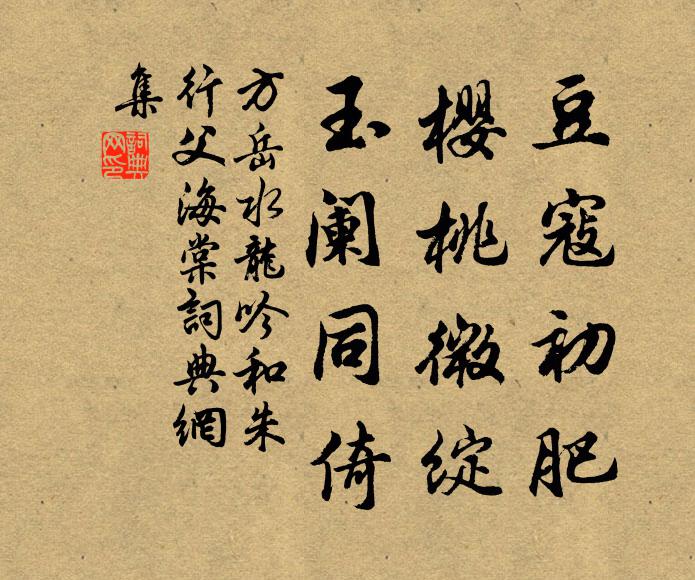 豆寇初肥
櫻桃微綻
玉闌同倚
方岳水龍吟和朱
行父海棠詞典網
集
詞典網印